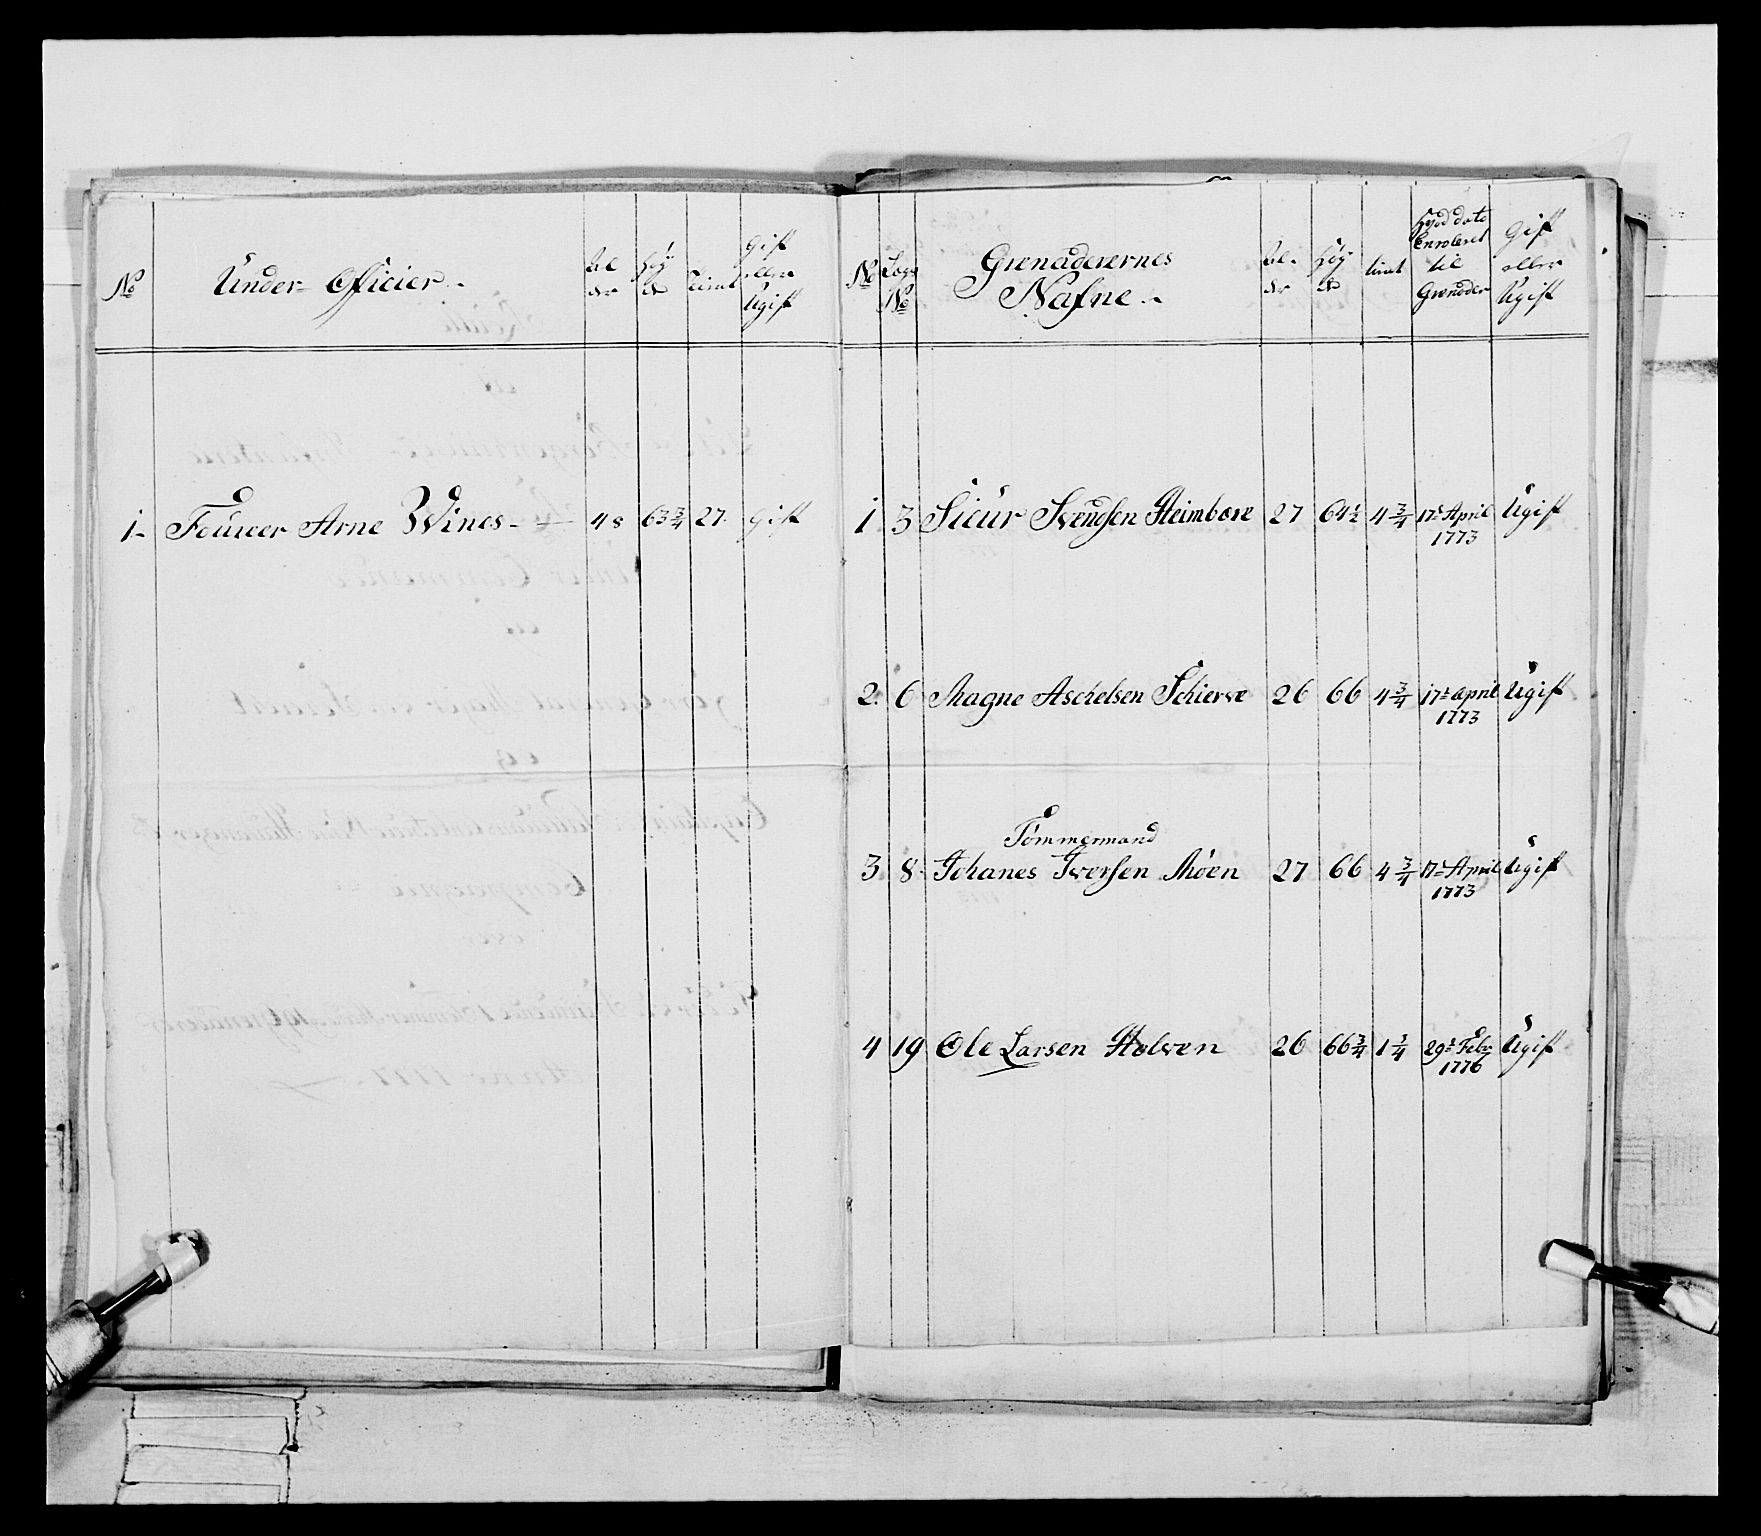 No
Under- Officier
Al
der
Høy
de
tient
Gift
eller
Ugift
1. Foureer Arne Wines 48 63 3/4 27. gift
No
Logs
No
Grenaderernes
Nafne
Al-
der
Høy
de
tient
Hvad dato
Enroleret
til
Grenader
Gift
eller
Ugift
1 3 Siŭr Svendsen Steimbore 27 64 1/2 4 3/4 17t April Ugift
1773
2. 6 Magne Aschelsen Schierve 26 66 4 3/4 17t april Ugift
1773
Tømmermand
3 8 Johanes Iversen Møen 27 66 4 3/4 17t April Ugift
1773
4 19 Ole Larsen Holven 26 66 3/4 1 1/4 29t Febr Ugift
1776